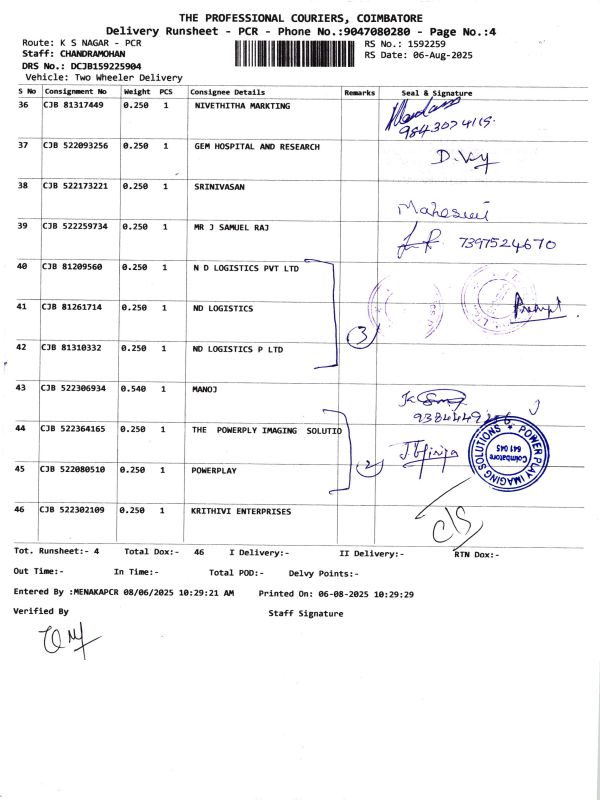 THE PROFESSIONAL COURIERS, COIMBATORE
Delivery Runsheet - PCR - Phone No.:9047080280 - Page No.:4
Route: K S NAGAR - PCR RS No.: 1592259
Staff: CHANDRAMOHAN RS Date: 06-Aug-2025
DRS No.: DCJB159225904
Vehicle: Two Wheeler Delivery
S No Consignment No Weight PCS Consignee Details Remarks Seal & Signature
36 CJB 81317449 0.250 1 NIVETHITHA MARKTING
9843074115
37 CJB 522093256 0.250 1 GEM HOSPITAL AND RESEARCH
D.
38 CJB 522173221 0.250 1 SRINIVASAN
39 CJB 522259734 0.250 1 MR J SAMUEL RAJ 7397524670
40 CJB 81209560 0.250 1 N D LOGISTICS PVT LTD
41 CJB 81261714 0.250 1 ND LOGISTICS
3
42 CJB 81310332 0.250 1 ND LOGISTICS P LTD
43 CJB 522306934 0.540 1 MANOJ
44 CJB 522364165 0.250 1 THE POWERPLY IMAGING SOLUTIO
POWER PLAY IMAGING SOLUTIONS
Coimbatore
641 045
2
45 CJB 522080510 0.250 1 POWERPLAY
46 CJB 522302109 0.250 1 KRITHIVI ENTERPRISES
C/S
Tot. Runsheet:- 4 Total Dox:- 46 I Delivery:- II Delivery:- RTN Dox:-
Out Time:- In Time:- Total POD:- Delvy Points:-
Entered By :MENAKAPCR 08/06/2025 10:29:21 AM Printed On: 06-08-2025 10:29:29
Verified By Staff Signature